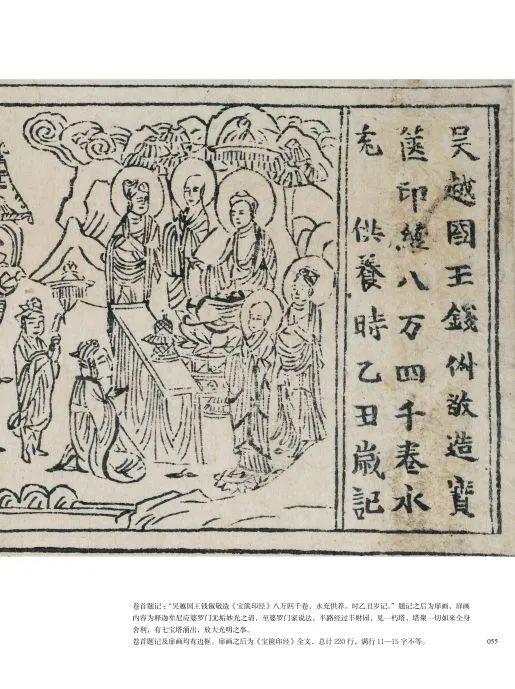 吴越國王錢俶敬造寶
篋印經八万四千卷永
充供養時乙丑歲記
卷首题记：“吴越国王钱俶敬造《宝箧印经》八万四千卷，永充供养。时乙丑岁记。”题记之后为扉画，扉画
内容为释迦牟尼应婆罗门无垢妙光之请，至婆罗门家说法，半路经过丰财园，见一朽塔，塔聚一切如来全身
舍利，有七宝塔涌出，放大光明之事。
卷首题记及扉画均有边框。扉画之后为《宝箧印经》全文，总计 220 行，满行 11—15 字不等。
055